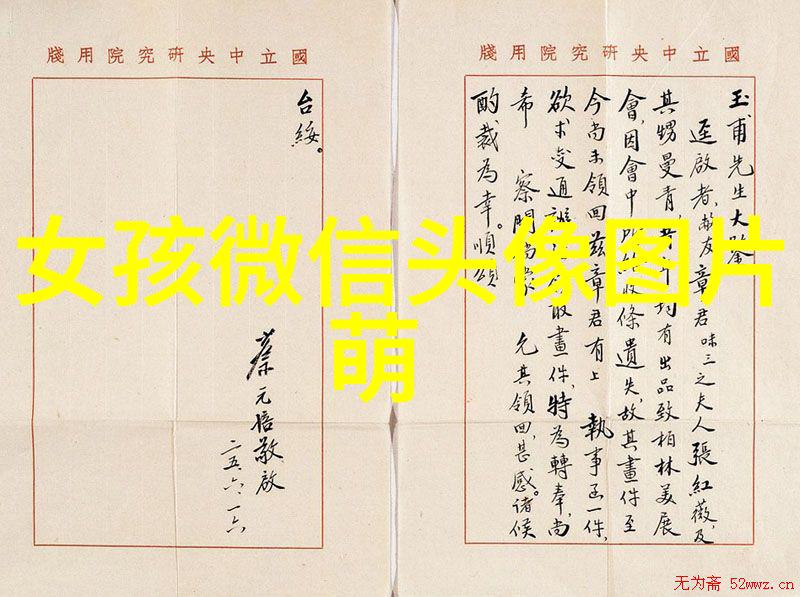 國立中央研究院用牋
玉甫先生大鑒
逕啟者,敝友章君味三之夫人張紅薇,及
其甥曼青,均有出品致柏林美展
會,因會中收條遺失,故其畫件至
今尚未領回茲章君有上 執事函一件,
欲求交通畫件,特為轉奉,尚
希 察閱尚蒙 允其領回,甚感。諸候
酌裁為幸。順頌
國立中央研究院用牋
台綏。
蔡元培敬啟
二五、六、一六
女孩微信头像图片
萌
无为斋 52wwz.cn